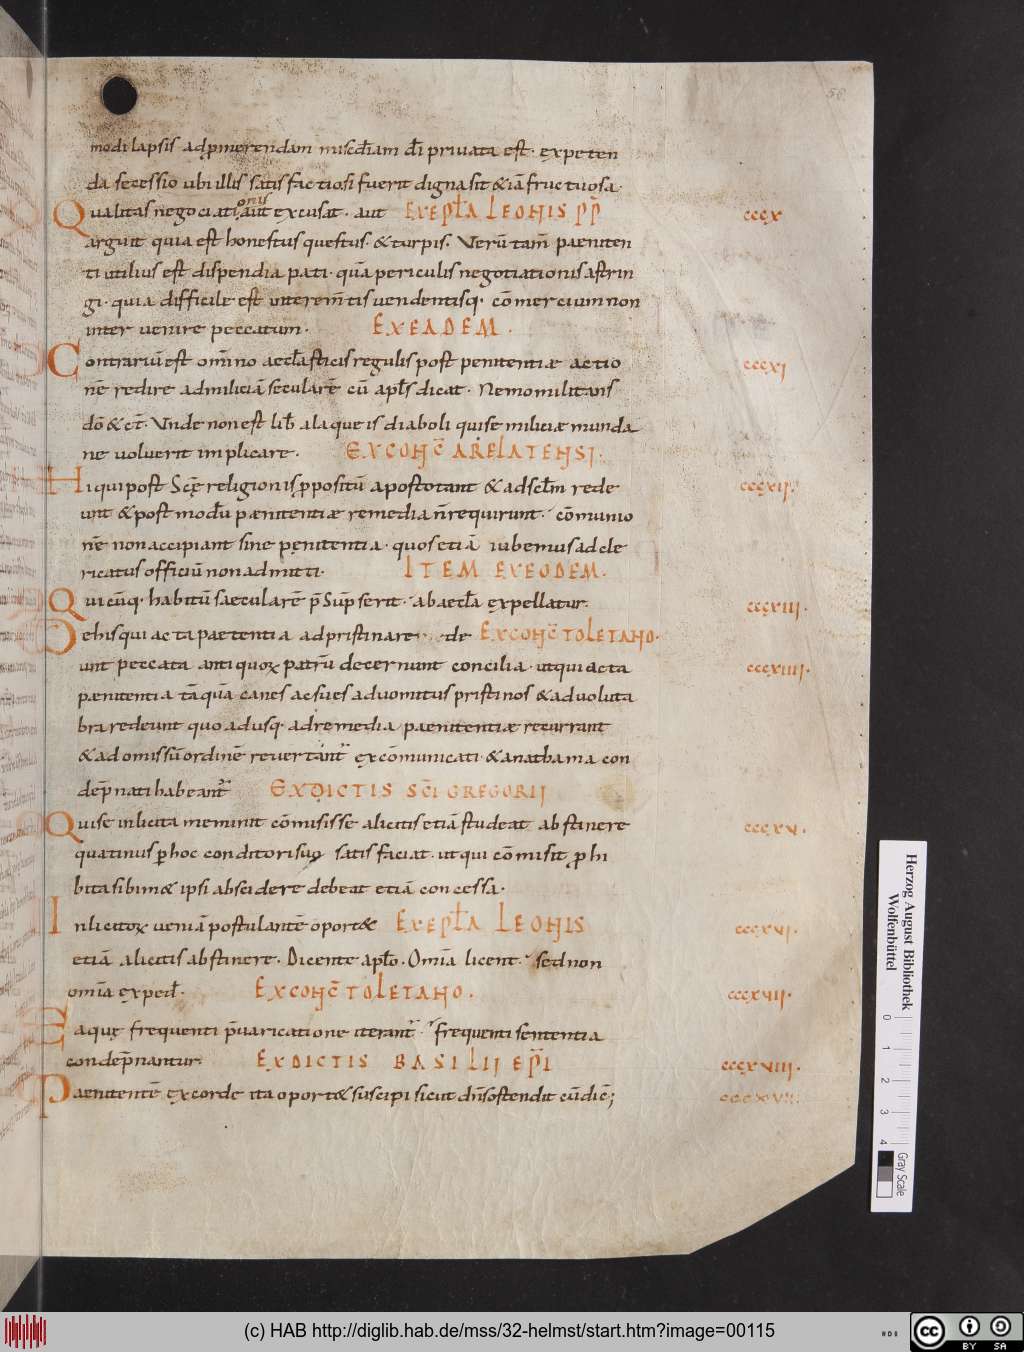 58
modi lapsis adp̄merendam miscd̄iam dī privata est. expeten
da secessio ubi illis satisfactiosi fuerit digna sit & iā fructuosa.
Qualitas negociationis aut excusat. aut EX EPLA LEONIS PP cccx
arguit quia est honestus questus. & turpis. Verū tam̄ paeniten
ti utilius est dispendia pati. quā periculis negotiationis astrin
gi. quia difficile est inter em̄tis vendentisq. cōmercium non
inter venire peccatum. EX EADEM. cccxi
Contrariū est om̄ino aecclasticis regulis post penitentiæ actio
nē redire ad miliciā secularē cū apls dicat. Nemo militans
dō & c̄t. Unde non est lib̄ a laqueis diaboli qui se miliciæ munda
ne voluerit implicare. EX CONC̄ ARELATENSI.
Hi qui post Scē religionis ppositū apostotant & ad sclm̄ rede cccxii.
unt & post modū pænitentiæ remedia n̄ requirunt. cōmunio
nē non accipiant sine penitentia. quos etiā iubemus ad cle
ricatus officiū non admitti. ITEM EX EODEM.
Qui cūq. habitū saecularē p̄Sūpserit. ab aecla expellatur. cccxiii.
De his qui acta paetentia ad pristina re de EX CONC̄ TOLETANO.
unt peccata antiquoꝝ patrū decernunt concilia. ut qui acta cccxiiii.
pænitentia tāquā canes ac sues ad vomitus pristinos & ad voluta
bra redeunt quo adusq. ad remedia paenitentiæ recurrant
& ad omissū ordinē revertant excōmunicati. & anathama con
dep̄nati habeant EX DICTIS SC̄I GREGORII
Qui se inlicita meminit cōmisisse a licitis etiā studeat abstinere cccxv.
quatinus p hoc conditori suo satisfaciat. ut qui cōmisit phi
bita sibim& ipsi abscidere debeat etiā concessa.
Inlicitoꝝ veniā postulantē oport& EX EPLA LEONIS cccxvi.
etiā a licitis abstinere. Dicente aplo. Omīa licent. sed non
omīa exped. EX CONC̄ TOLETANO. cccxvii.
Ea quę frequenti p̄varicatione iterant. frequenti sententia
condep̄nantur. EX DICTIS BASILII EPI cccxviii.
Paenitentē ex corde ita oport& suscipi sicut dn̄s ostendit cū dic̄;
Herzog August Bibliothek
Wolfenbüttel
0 1 2 3 4
Gray Scale
(c) HAB http://diglib.hab.de/mss/32-helmst/start.htm?image=00115
cc BY SA